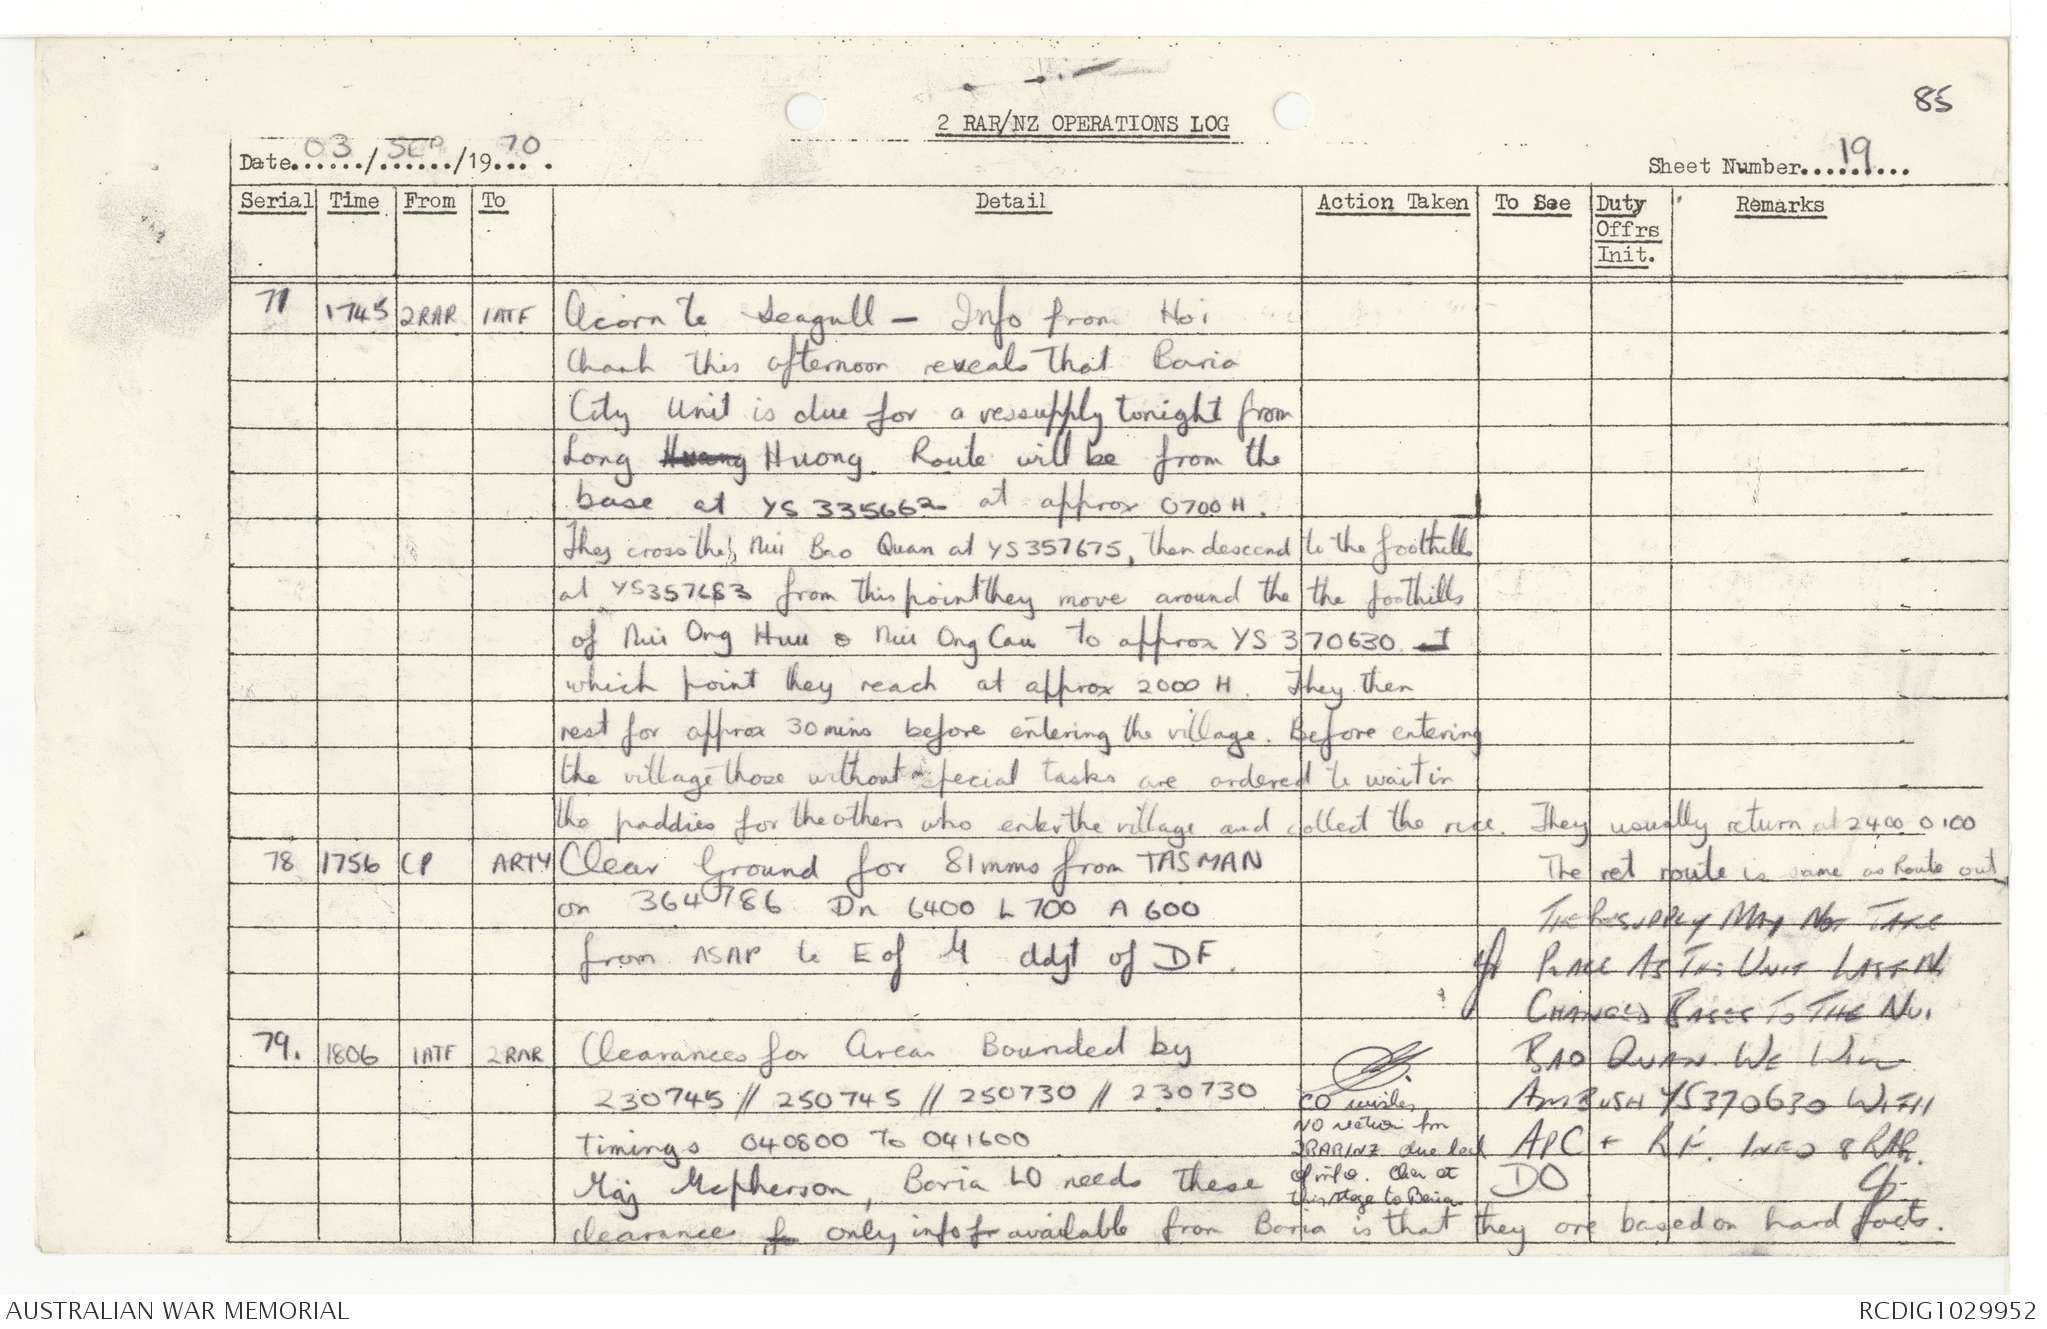 85
2 RAR/NZ OPERATIONS LOG
Date 03 / SEP / 1970.
Sheet Number 19
Serial Time From To Detail Action Taken To See Duty Offrs Init. Remarks
77 1745 2RAR 1ATF Acorn to Seagull - Info from Hoi
Chanh this afternoon reveals that Baria
City Unit is due for a ressupply tonight from
Long Huong Route will be from the
base at YS 335662 at approx 0700 H.
They cross the Nui Bao Quan at YS357675, then descend to the foothills
at YS357683 from this point they move around the the foothills
of Nui Ong Huu & Nui Ong Cau to approx YS 370630
which point they reach at approx 2000 H. They then
rest for approx 30 mins before entering the village. Before entering
the village those without special tasks are ordered to wait in
the paddies for the others who enter the village and collect the rice. They usually return at 2400 0100
The ret route is same as Route out
THE RESUPPLY MAY NOT TAKE
PLACE AS THE UNIT LAST N.
CHANGED BASES TO THE NUI
BAO QUAN. WE WILL
AMBUSH YS370630 WITH
APC + RF. INFO 8 RAR.
78 1756 CP ARTY Clear Ground for 81mms from TASMAN
on 364786 Dn 6400 L 700 A 600
from ASAP to E of M ddjt of DF.
79. 1806 1ATF 2RAR Clearances for Area Bounded by
230745 // 250745 // 250730 // 230730
timings 040800 to 041600
Maj Mcpherson, Baria LO needs these
clearances only info available from Baria is that they are based on hard facts.
CO wishes
NO action from
2RAR/NZ due lack
of info. Clear at
this stage to Baria
DO
AUSTRALIAN WAR MEMORIAL
RCDIG1029952